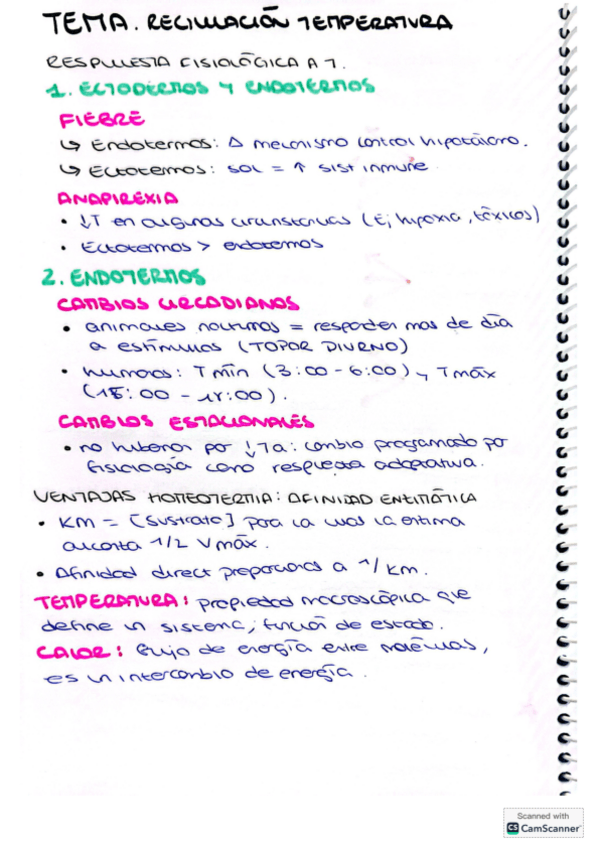 TEMA. REGULACIÓN TEMPERATURA
RESPUESTA FISIOLÓGICA A T.
1. ECTODERMOS Y ENDOTERMOS
FIEBRE
↳ Endotermos: Δ mecanismo control hipotálamo.
↳ Ectotermos: sol = ↑ sist inmune
ANAPIREXIA
• ↓T en algunas circunstancias (Ej hipoxia, tóxicos)
• Ectotermos > endotermos
2. ENDOTERMOS
CAMBIOS CIRCADIANOS
• animales nocturnos = responden mas de día
a estímulos (TOPOR DIURNO)
• humanos: T mín (3:00 - 6:00) y Tmáx
CAMBIOS ESTACIONALES
• no hibernan por ↓Ta: cambio programado por
fisiología como respuesta adaptativa.
VENTAJAS HOMEOTERMIA: AFINIDAD ENZIMÁTICA
• KM = [Sustrato] para la cual la enzima
alcanza 1/2 Vmáx.
• Afinidad direct proporcional a 1/Km.
TEMPERATURA: propiedad macroscópica que
define un sistema; función de estado.
CALOR: flujo de energía entre moléculas,
es un intercambio de energía.
Scanned with
CS CamScanner